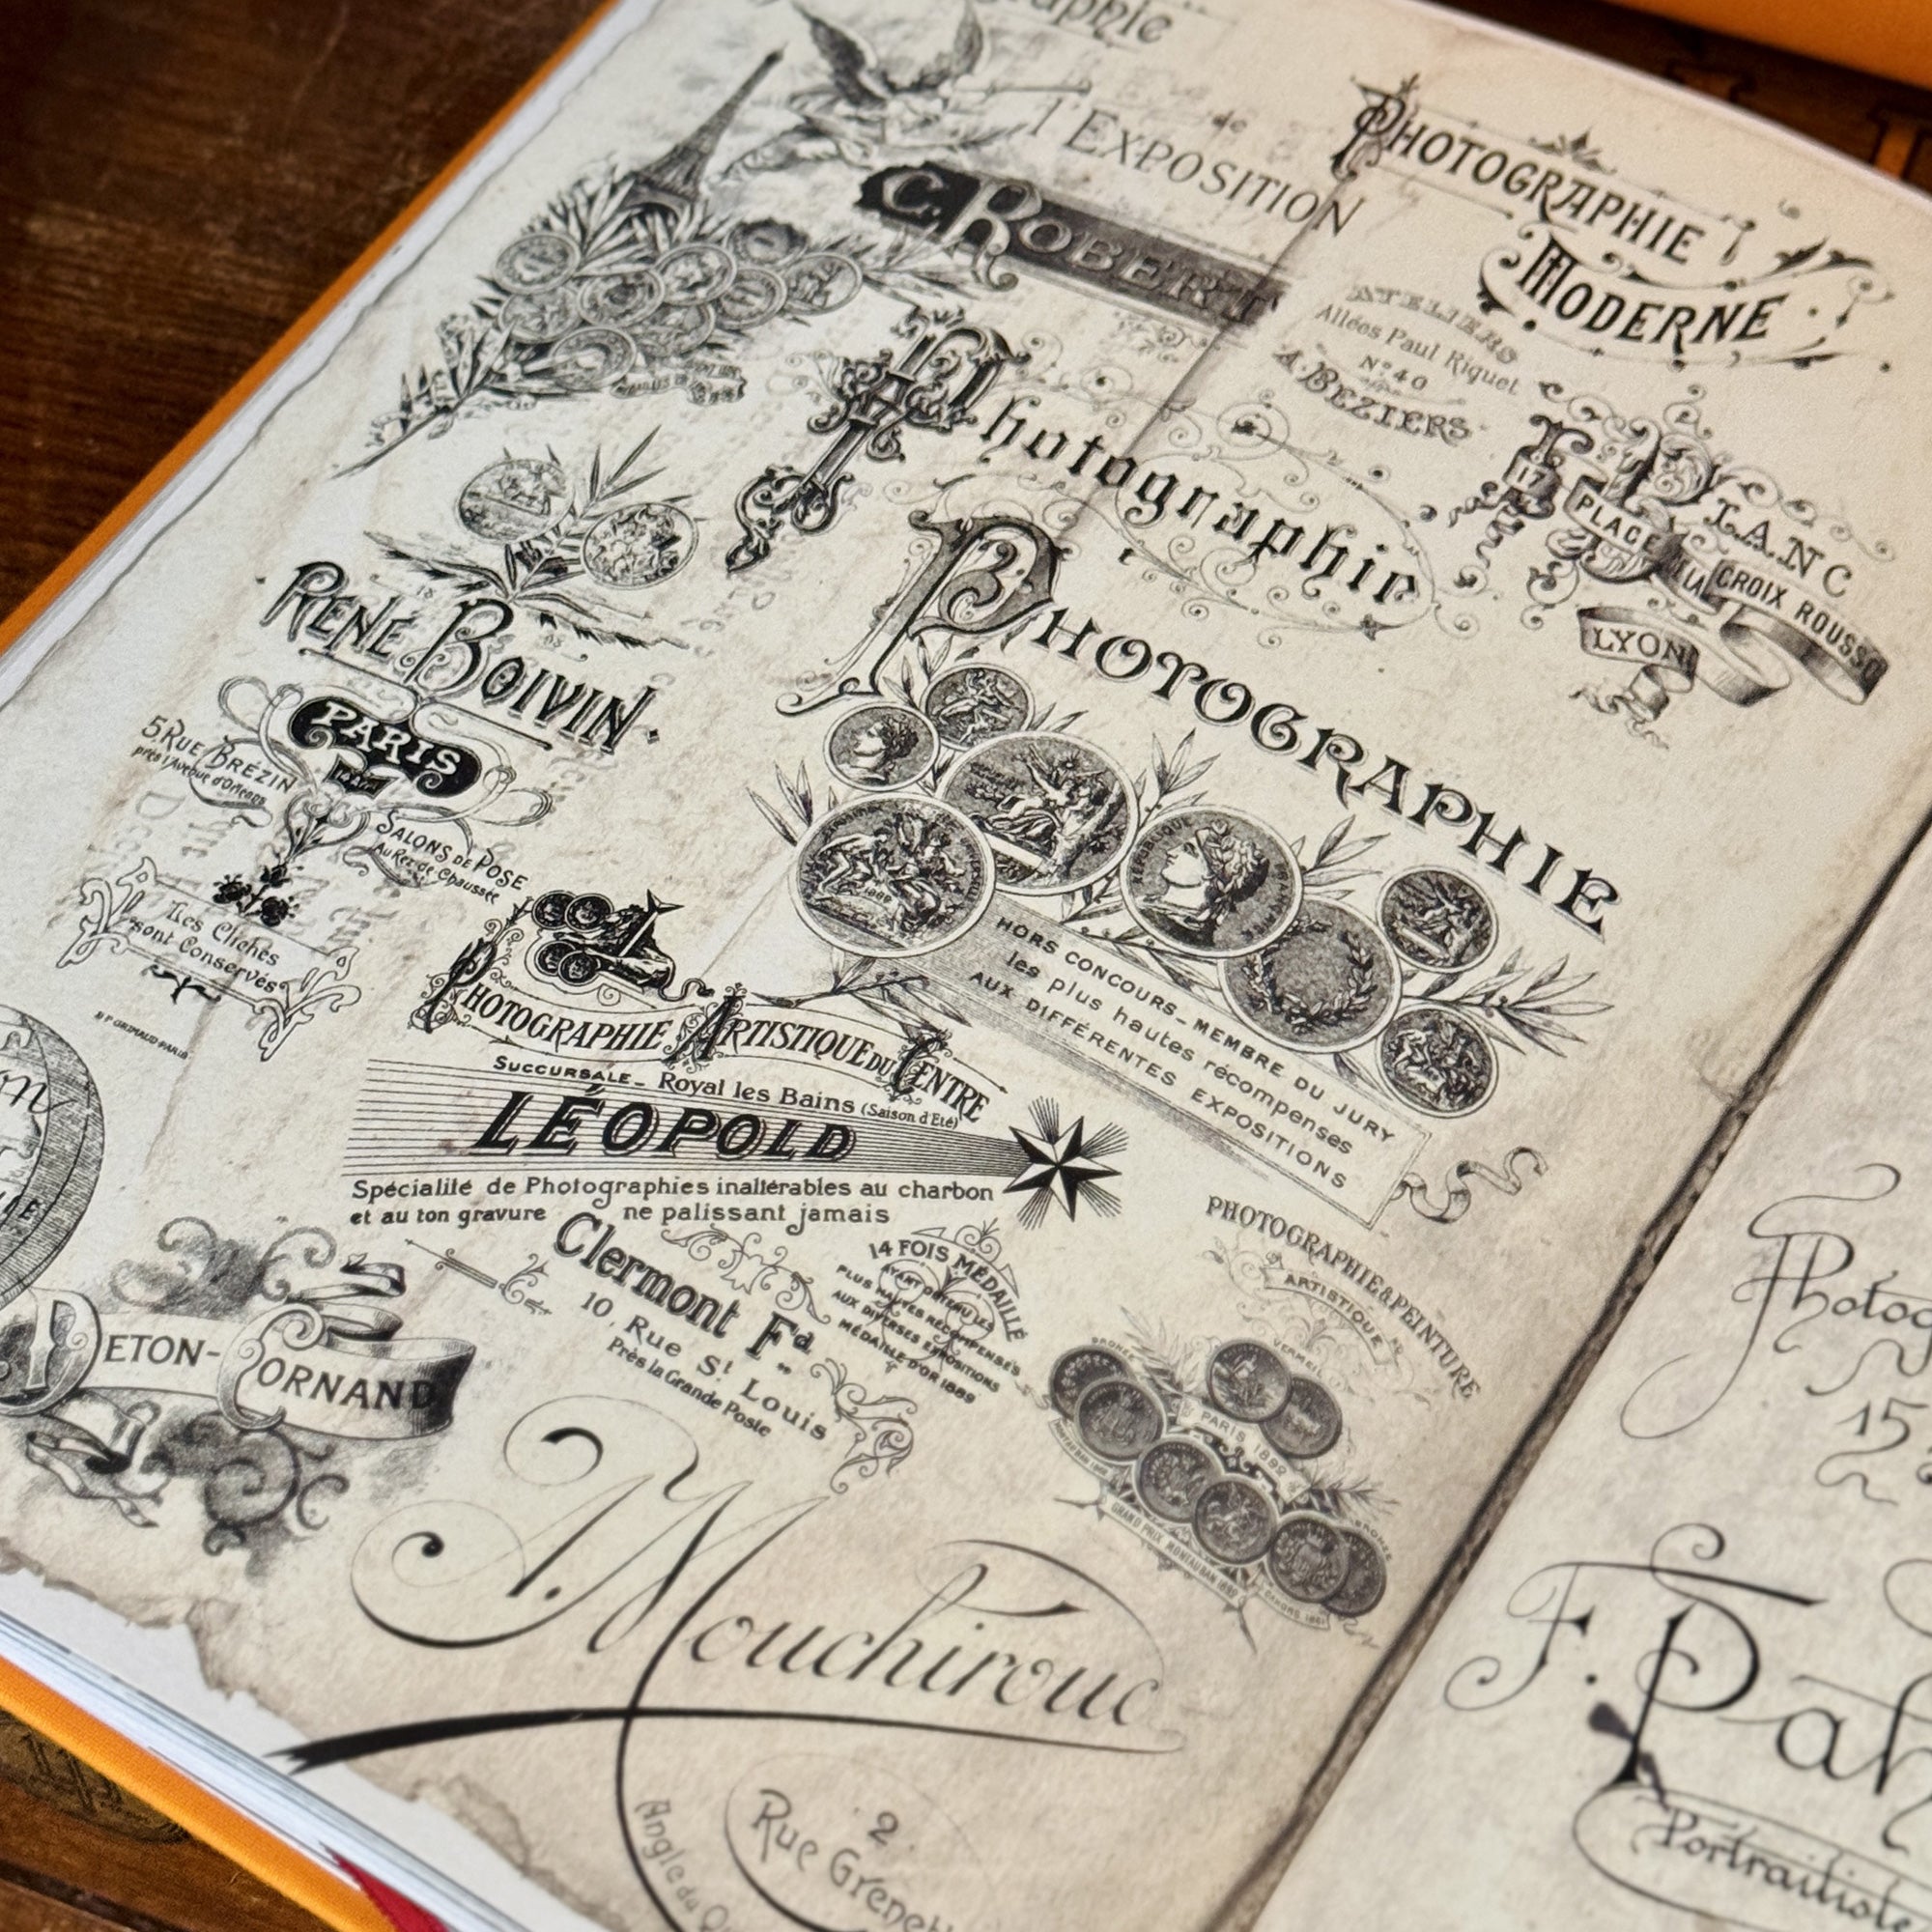 de
l'EXPOSITION
C. ROBERT
PHOTOGRAPHIE
MODERNE
ATELIERS
Allées Paul Riquet
N° 40
A. BEZIERS
Photographie
BLANC
17
PLACE
DE LA
CROIX ROUSSE
LYON
RENÉ BOIVIN.
PARIS
5 RUE BRÉZIN
près l'Avenue d'Orléans
SALONS DE POSE
Au Rez de Chaussée
Les Clichés
sont Conservés
B P GRIMAUD PARIS
PHOTOGRAPHIE
RÉPUBLIQUE
1889
HORS CONCOURS_MEMBRE DU JURY
les plus hautes récompenses
AUX DIFFÉRENTES EXPOSITIONS
PHOTOGRAPHIE ARTISTIQUE DU CENTRE
SUCCURSALE_ Royal les Bains (Saison d'Eté)
LÉOPOLD
Spécialité de Photographies inaltérables au charbon
et au ton gravure ne palissant jamais
Clermont Fd
10, Rue St Louis
Près la Grande Poste
14 FOIS MÉDAILLÉ
AYANT OBTENU LES
PLUS HAUTES RÉCOMPENSES
AUX DIVERSES EXPOSITIONS
MÉDAILLE D'OR 1889
PHOTOGRAPHIE & PEINTURE
ARTISTIQUE
BRONZE
VERMEIL
PARIS 1892
GRAND PRIX MONTAUBAN
CAHORS 1881
BRONZE
PETON-CORNAND
A. Mouchirouc
2
Rue
Angle du
15
F.
Portraitiste